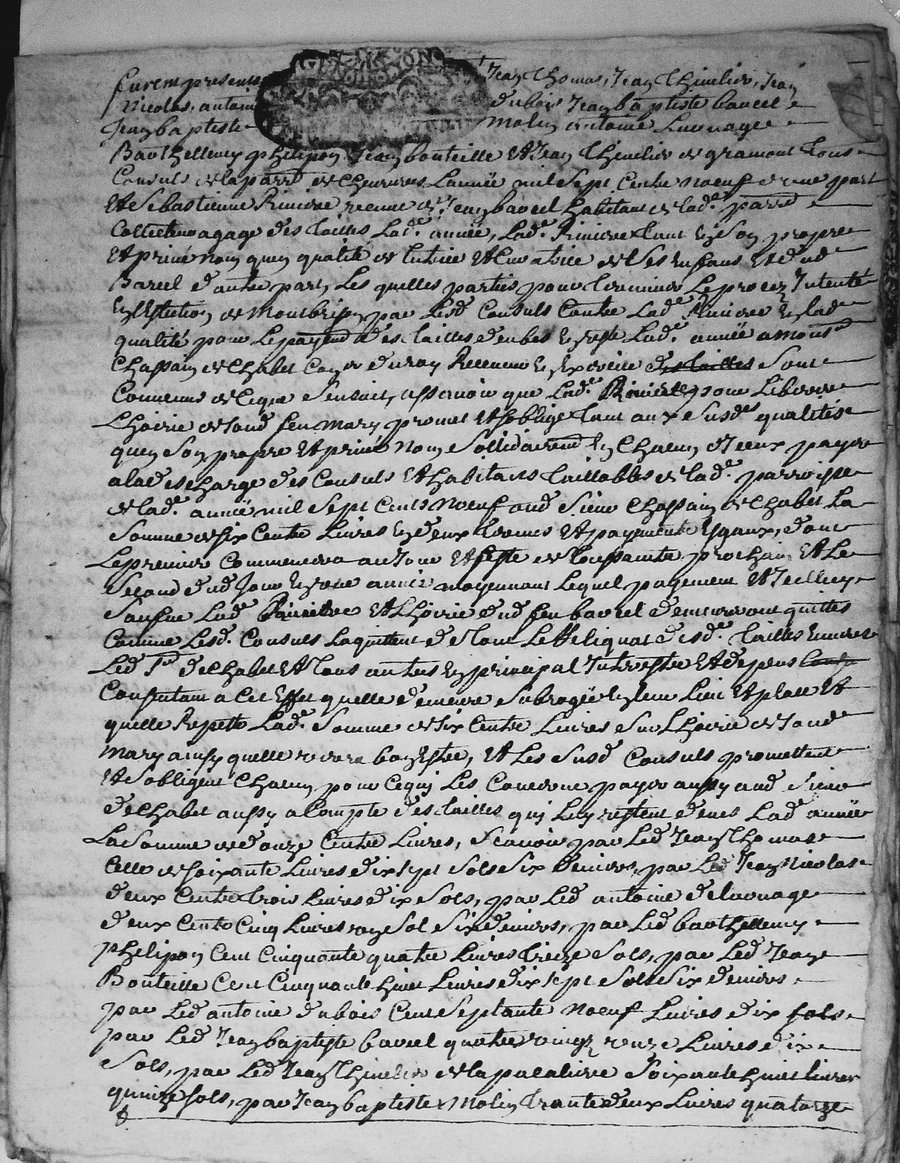 furent presents Jean Thomas, Jean Thinelier, Jean
Nicolas, antoine dubois Jean baptiste bareel
Jean baptiste Molin antoine
Barthellemy phelipon Jean bouteille et Jean Thinelier de gramont tous
Consuls de la parr.e de Chevrieres Lannée mil Sept Cents Noeuf d'une part
Et Sebastienne Riviere vefve de Jean bareel habitans de lad.e parr.e
Collecteur des tailles Lad.e année, Lad.e Riviere tant En Son propre
Et privé nom quen qualité de tutrice Et Curatrice de Ses Enfans Et dud
Bareel d'autre part, Les quelles parties pour terminer Le procez Intenté
En L'Election de Montbrison par Lesd Consuls Contre Lad.e Riviere En lad
qualité pour Le payem.t des tailles deubes de reste Lad.e année a mons.r
Chassain de Chabet Con.er du roy Receveur En Exercice des tailles Sont
Convenus de Ce qui Sensuit, assavoir que Lad.e Riviere pour Liberer
Lhoirie de Sond feu mary, promet Et Soblige tant aux Susd.es qualités
quen Son propre Et privé Nom Sollidairem.t En Chacun d'Iceux payer
a la descharge des Consuls Et habitans taillables de lad.e parroisse
de lad.e année mil Sept Cents Noeuf aud Sieur Chassain de Chabet La
Somme de Six Cents Livres En deux termes Et payements Egaux, dont
Le premier Commencera au Jour Et feste de toussaints prochain Et Le
Second dud Jour En une année moyennant Lequel payement Et Icelluy
Lad.e Riviere Et Lhoirie dud feu bareel demeureront quittes
Comme Lesd. Consuls Laquittent de tout Le Reliquat desd.es tailles Envers
Led S.r de Chabet Et tous autres En principal Interestz Et depens
Consentant a Cet Effet quelle demeure Subrogée En leur Lieu Et place Et
quelle Repette Lad.e Somme de Six Cents Livres Sur Lhoirie de Sond
Mary ainsy quelle verra bon Estre, Et Les Susd Consuls promettent
Et Sobligent Chacun pour Ce quy Les Concerne payer aussy aud Sieur
de Chabet aussy a Compte des tailles quy Luy restent deues Lad.e année
La Somme de d'onze Cents Livres, Scavoir par Led Jean Thomas
Celle de Soixante Livres dix Sept Sols Six deniers, par Led Jean Nicolas
deux Cents trois Livres dix Sols, par Led antoine
deux Cents Cinq Livres un Sol Six deniers, par Led barthellemy
phelipon Cent Cinquante quatre Livres treize Sols, par Led Jean
Bouteille Cent Cinquante huit Livres dix Sept Sols Six deniers,
par Led antoine dubois Cent Septante Noeuf Livres dix Sols
par Led Jean baptiste bareel quatre vingt unze Livres dix
Sols, par Led Jean Thinelier de la palaliere Soixante huit livres
quinze Sols, par Jean baptiste Molin trente deux Livres quatorze